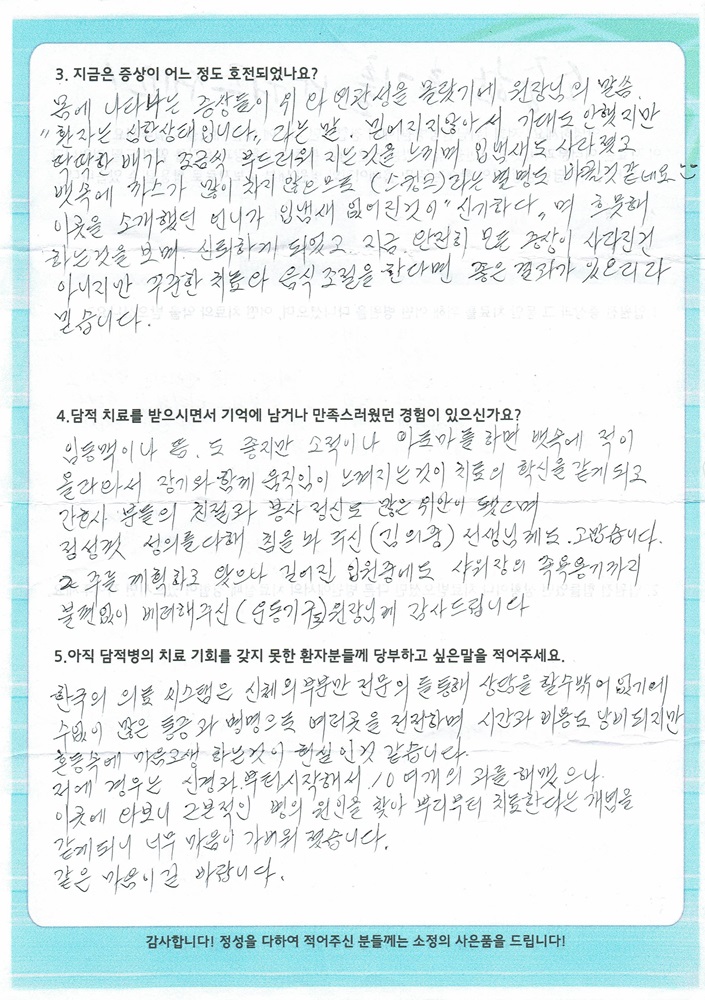 3. 지금은 증상이 어느 정도 호전되었나요?
몸에 나타나는 증상들이 위와 연관성을 몰랐기에 원장님의 말씀.
"환자는 심한상태입니다" 라는 말. 믿어지지않아서 기대도 안했지만
딱딱한 배가 조금씩 부드러워 지는것을 느끼며 입냄새도 사라졌고
뱃속에 까스가 많이 차지 않으므로 (스컹크)라는 별명도 바뀔것 같네요
이곳을 소개했던 언니가 입냄새 없어진것이 "신기하다" 며 흐뭇해
하는것을 보며 신뢰하게 되었고 지금. 완전히 모든 증상이 사라진건
아니지만 꾸준한 치료와 음식조절을 한다면 좋은 결과가 있으리라
믿습니다.
4.담적 치료를 받으시면서 기억에 남거나 만족스러웠던 경험이 있으신가요?
뜸.도 좋지만 소적이나 아로마를 하면 뱃속에 적이
올라와서 장기와함께 움직임이 느껴지는것이 치료의 확신을 갖게되고
간호사 분들의 친절과 봉사 정신도 많은 위안이 됐으며
정성껏 성의를다해 침을 놔 주신 (김의중) 선생님께도.고맙습니다.
2주를 계획하고 왔으나 길어진 입원중에도 샤워장의 족욕용기까지
불편없이 배려해주신 원장님께 감사드립니다
5.아직 담적병의 치료 기회를 갖지 못한 환자분들께 당부하고 싶은말을 적어주세요.
한국의 의료 시스템은 신체의부분만 전문의를통해 상담을 할수밖에 없기에
수없이 많은 통증과 병명으로 여러곳을 전전하며 시간과 비용도 낭비되지만
혼동속에 마음고생 하는것이 현실인것 같습니다.
저에 경우는 신경과.부터시작해서 10여개의 과를 헤맸으나.
이곳에 와보니 근본적인 병의 원인을 찾아 뿌리부터 치료한다는 개념을
갖게되니 너무 마음이 가벼워 졌습니다.
같은 마음이길 바랍니다.
감사합니다! 정성을 다하여 적어주신 분들께는 소정의 사은품을 드립니다!